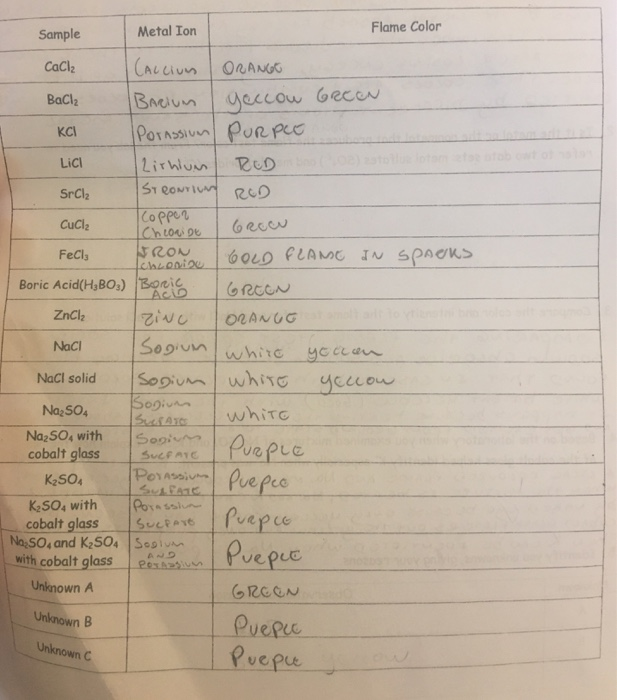 Sample Metal Ion Flame Color
CaCl₂ CALCIUM ORANGE
BaCl₂ BARIUM YELLOW GREEN
KCl POTASSIUM PURPLE
LiCl LITHIUM RED
SrCl₂ STRONTIUM RED
CuCl₂ COPPER CHLORIDE GREEN
FeCl₃ IRON CHLORIDE GOLD FLAME IN SPARKS
Boric Acid(H₃BO₃) BORIC ACID GREEN
ZnCl₂ ZINC ORANGE
NaCl SODIUM WHITE YELLOW
NaCl solid SODIUM WHITE YELLOW
Na₂SO₄ SODIUM SULFATE WHITE
Na₂SO₄ with cobalt glass SODIUM SULFATE PURPLE
K₂SO₄ POTASSIUM SULFATE PURPLE
K₂SO₄ with cobalt glass POTASSIUM SULFATE PURPLE
Na₂SO₄ and K₂SO₄ with cobalt glass SODIUM AND POTASSIUM PURPLE
Unknown A GREEN
Unknown B PURPLE
Unknown C PURPLE